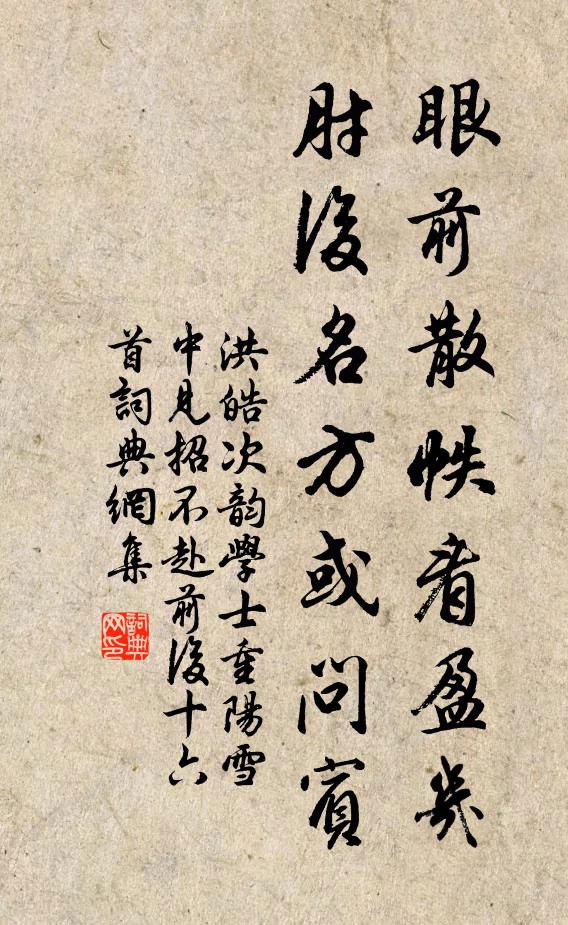 眼前散帙看盈几
肘後名方或問賓
洪皓次韵學士重陽雪
中見招不赴前後十六
首詞典網集
詞典网印